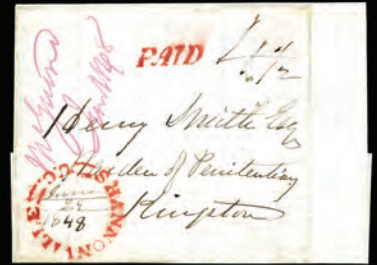 PAID
4½
Henry Smith Esq
Warden of Penitentiary
Kingston
SHANNONVILLE U.C.
June
29
1848